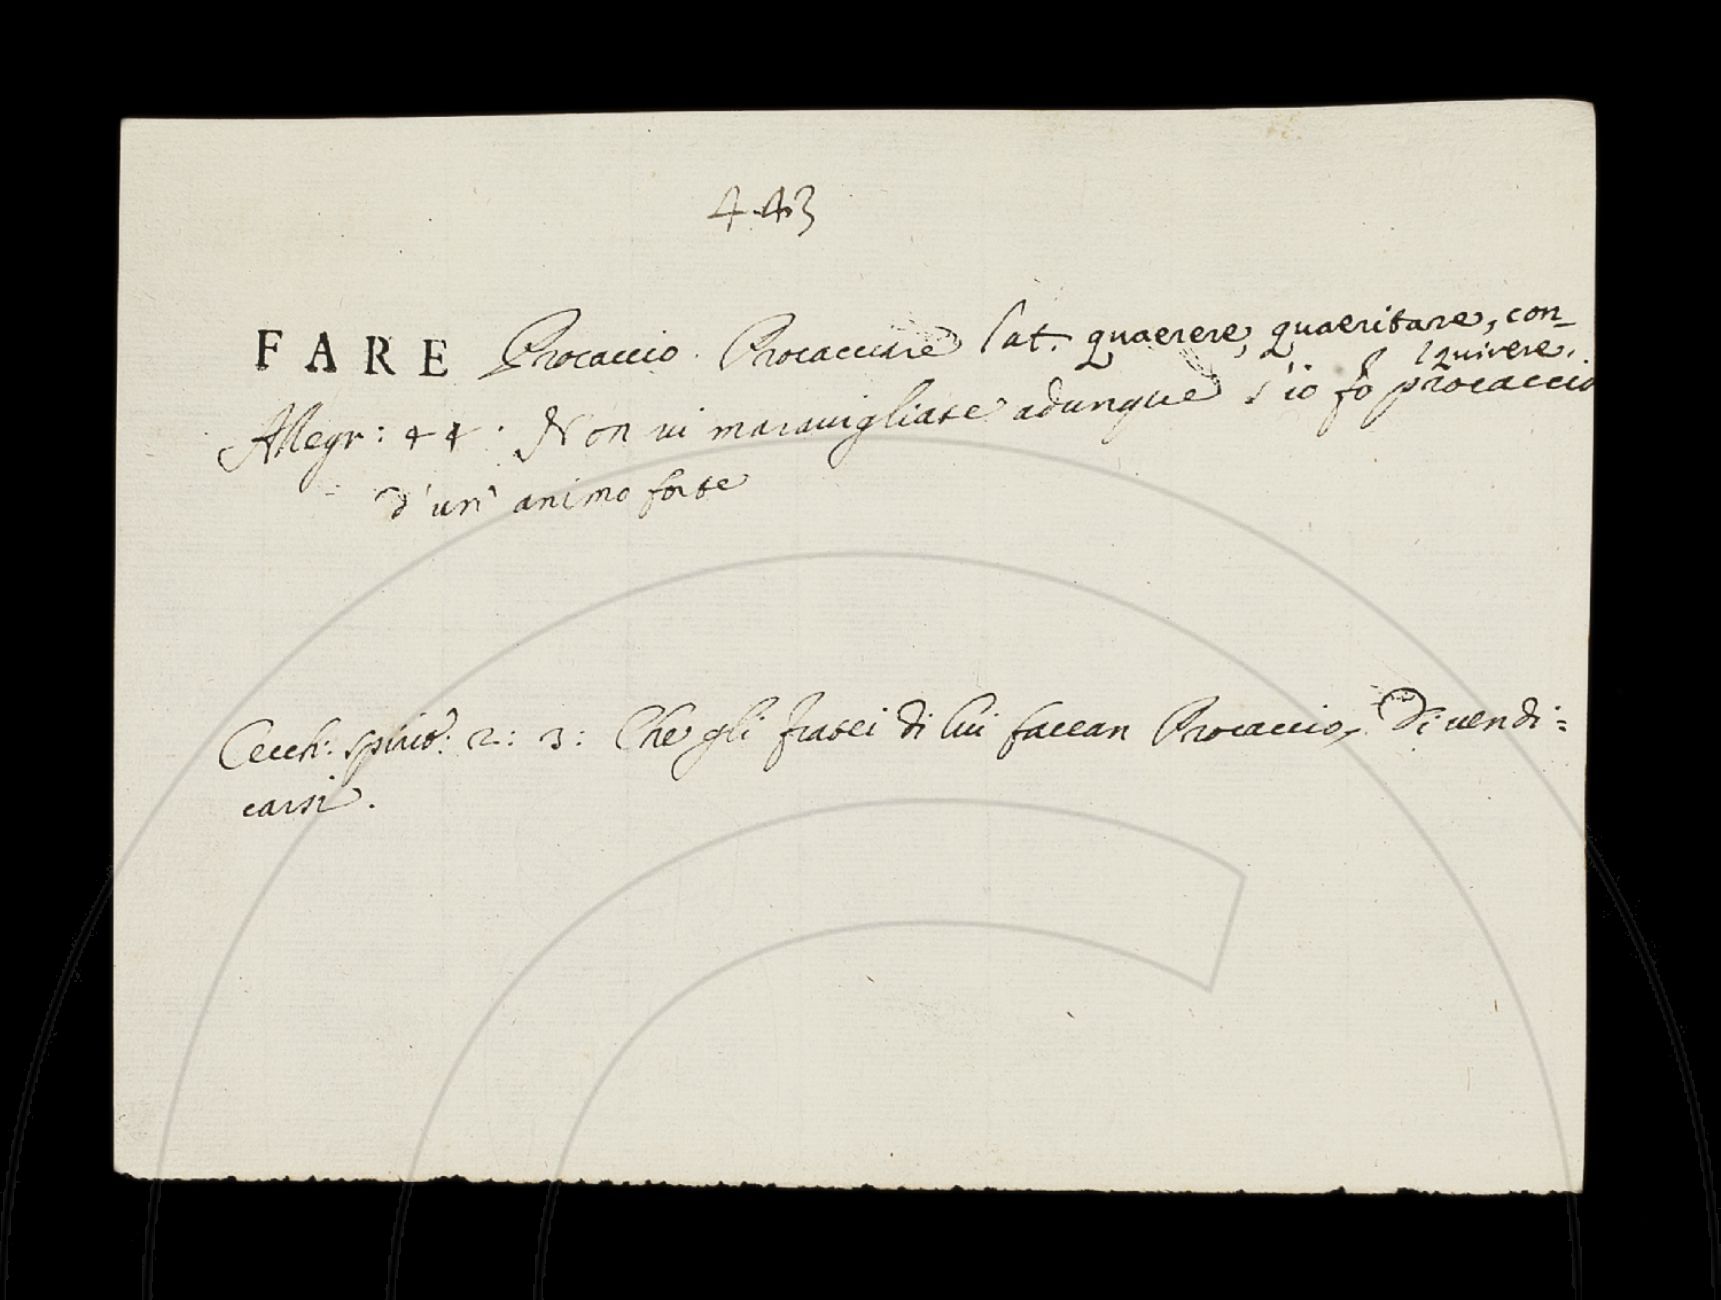 443
FARE Procaccio. Procacciare lat. quaerere, quaeritare, con-
quirere.
Allegr: 44. Non vi maravigliate adunque s'io fo procaccio
d'un' animo forte
Cecch: spirit: 2: 3: Che gli fratei di lui faccan Procaccio, Di vendi=
carsi.